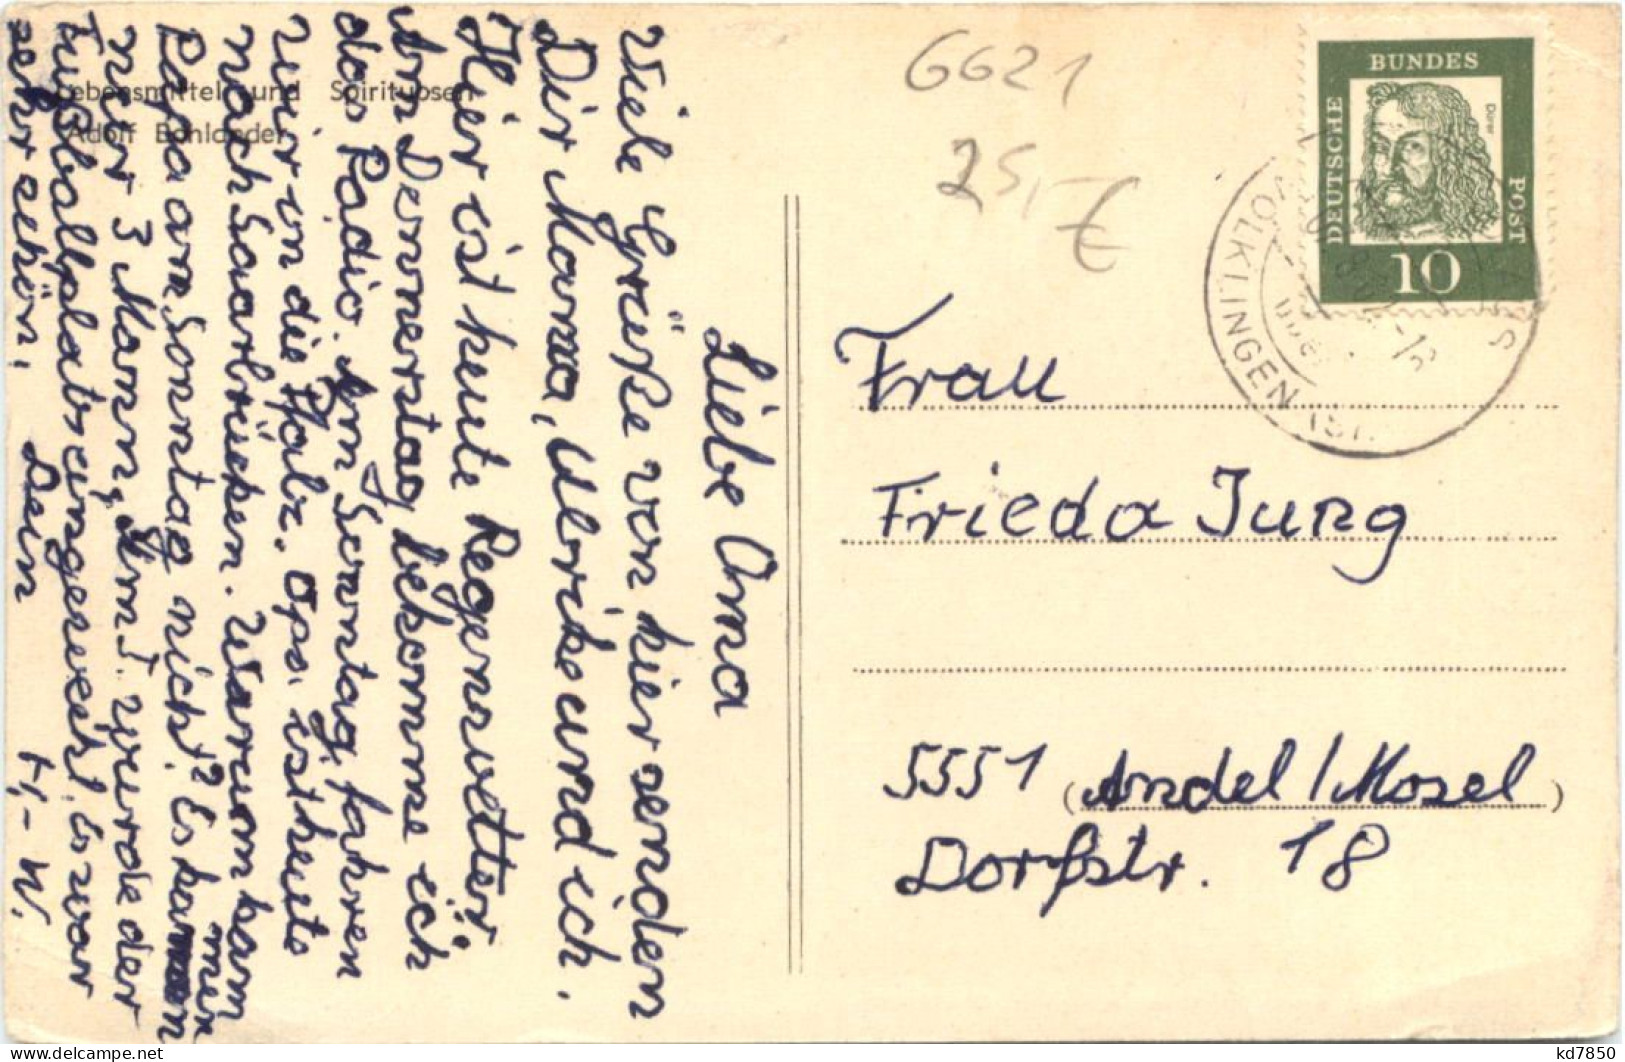 Lebensmittel und Spirituosen
Adolf Bohlander
Liebe Oma
Viele Grüße von hier senden
Dir Mama, Ulrike und ich.
Hier ist heute Regenwetter.
Am Donnerstag bekomme ich
das Radio. Am Sonntag fahren
wir in die Pfalz. Opa ist heute
nach Saarbrücken. Warum kam
Papa am Sonntag nicht? Es kamen
nur 3 Mann. Am 1. wurde der
Fußballplatz eingeweiht. Es war
sehr schön. Dein
6621
25,-€
BUNDES
DEUTSCHE
POST
Dürer
10
VÖLKLINGEN
über
Frau
Frieda Jung
5551 (Andel / Mosel)
Dorfstr. 18
kd7850